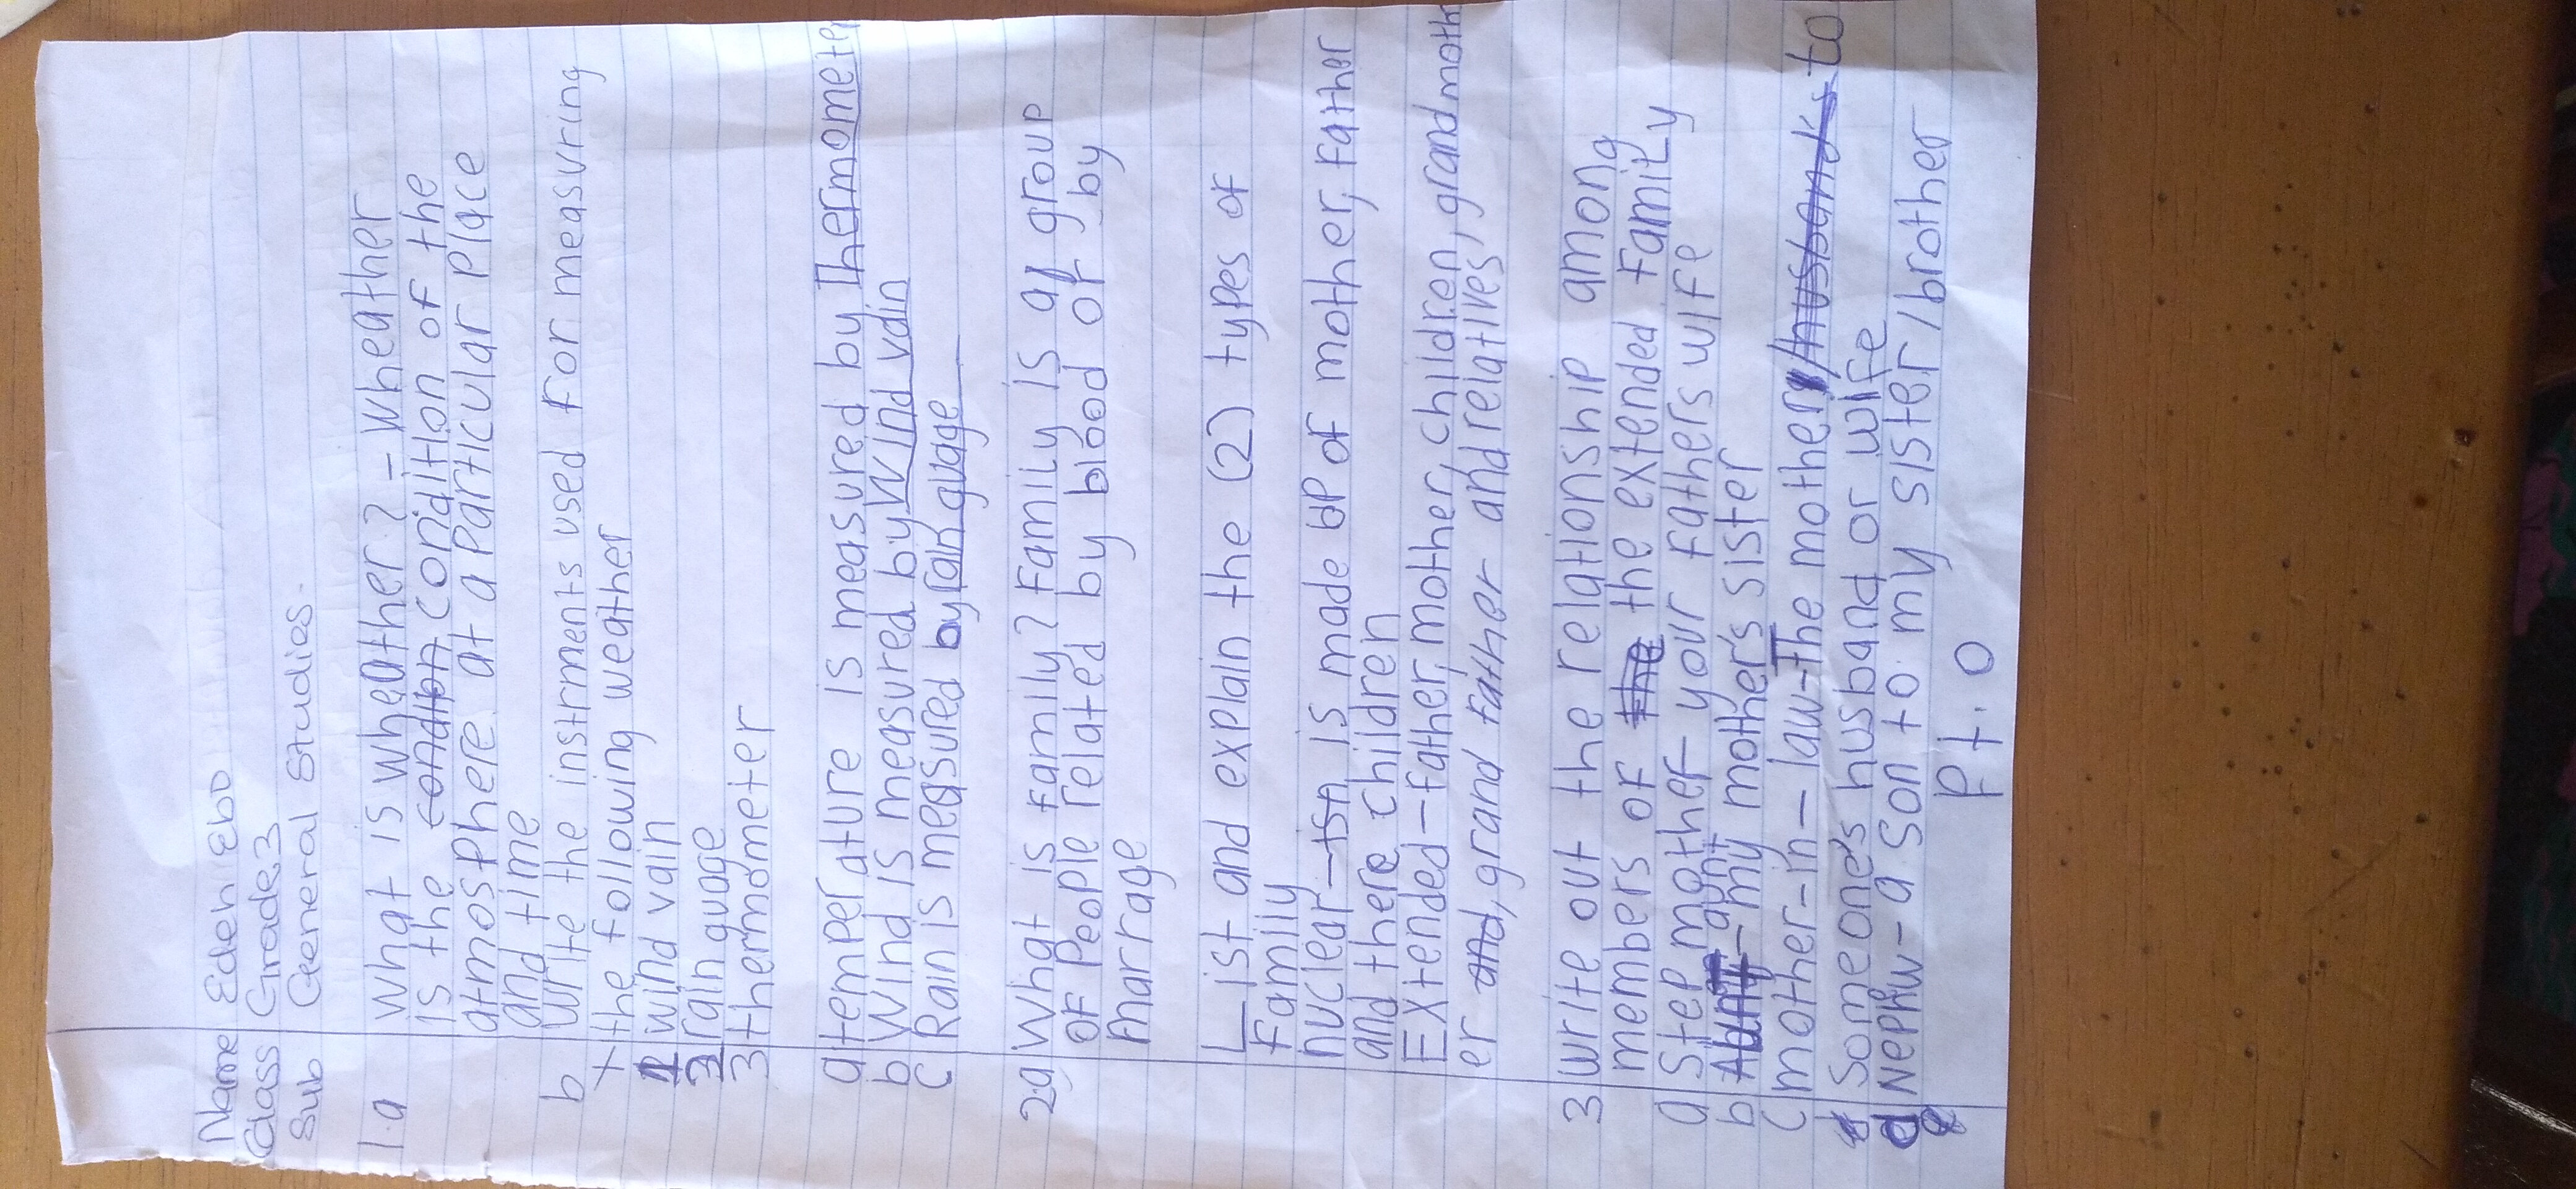 Name Edeh Ebo
Class Grade 3
Sub General Studies.
1.a What is wheather? - Wheather
is the condition condition of the
atmosphere at a particular place
and time
b write the instrments used for measuring
the following weather
1 wind vain
2 rain guage
3 thermometer
a temperature is measured by Thermometer
b Wind is measured by Wind vain
c Rain is measured by rain guage
2a What is family? Family is a group
of people related by blood or by
marrage
List and explain the (2) types of
Family
nuclear - is made up of mother, father
and there children
Extended - father, mother, children, grandmoth
er and, grand father and relatives
3 write out the relationship among
members of the the extended family
a Step mother - your fathers wife
b Aunt aunt - my mother's sister
c mother-in-law - The mother /husband's to
someone's husband or wife
d Nephw - a son to my sister/brother
P.t.o